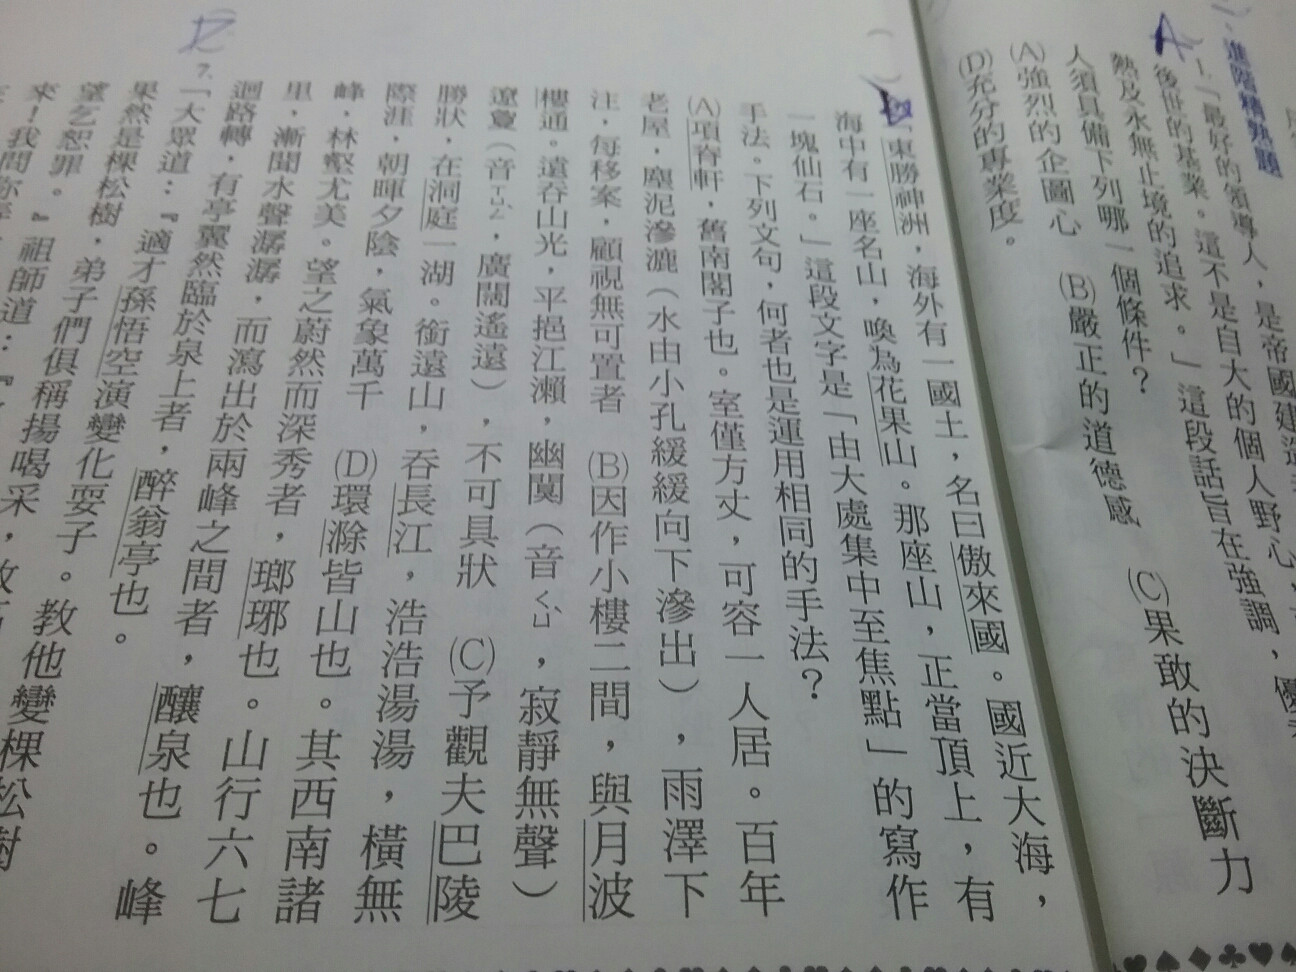 進階精熟題
A
1.「最好的領導人，是帝國建造
後世的基業。這不是自大的個人野心，
熱及永無止境的追求。」這段話旨在強調，優
人須具備下列哪一個條件？
(A)強烈的企圖心　(B)嚴正的道德感　(C)果敢的決斷力
(D)充分的專業度。
「東勝神洲，海外有一國土，名曰傲來國。國近大海，
海中有一座名山，喚為花果山。那座山，正當頂上，有
一塊仙石。」這段文字是「由大處集中至焦點」的寫作
手法。下列文句，何者也是運用相同的手法？
(A)項脊軒，舊南閣子也。室僅方丈，可容一人居。百年
老屋，塵泥滲漉（水由小孔緩緩向下滲出），雨澤下
注，每移案，顧視無可置者　(B)因作小樓二間，與月波
樓通。遠吞山光，平挹江瀨，幽闃（音ㄑㄩˋ，寂靜無聲）
遼夐（音ㄒㄩㄥˋ，廣闊遙遠），不可具狀　(C)予觀夫巴陵
勝狀，在洞庭一湖。銜遠山，吞長江，浩浩湯湯，橫無
際涯，朝暉夕陰，氣象萬千　(D)環滁皆山也。其西南諸
峰，林壑尤美。望之蔚然而深秀者，瑯琊也。山行六七
里，漸聞水聲潺潺，而瀉出於兩峰之間者，釀泉也。峰
迴路轉，有亭翼然臨於泉上者，醉翁亭也。
7.「大眾道：『適才孫悟空演變化耍子。教他變棵松樹
果然是棵松樹，弟子們俱稱揚喝采，故
望乞恕罪。』祖師道：『
來！我問你